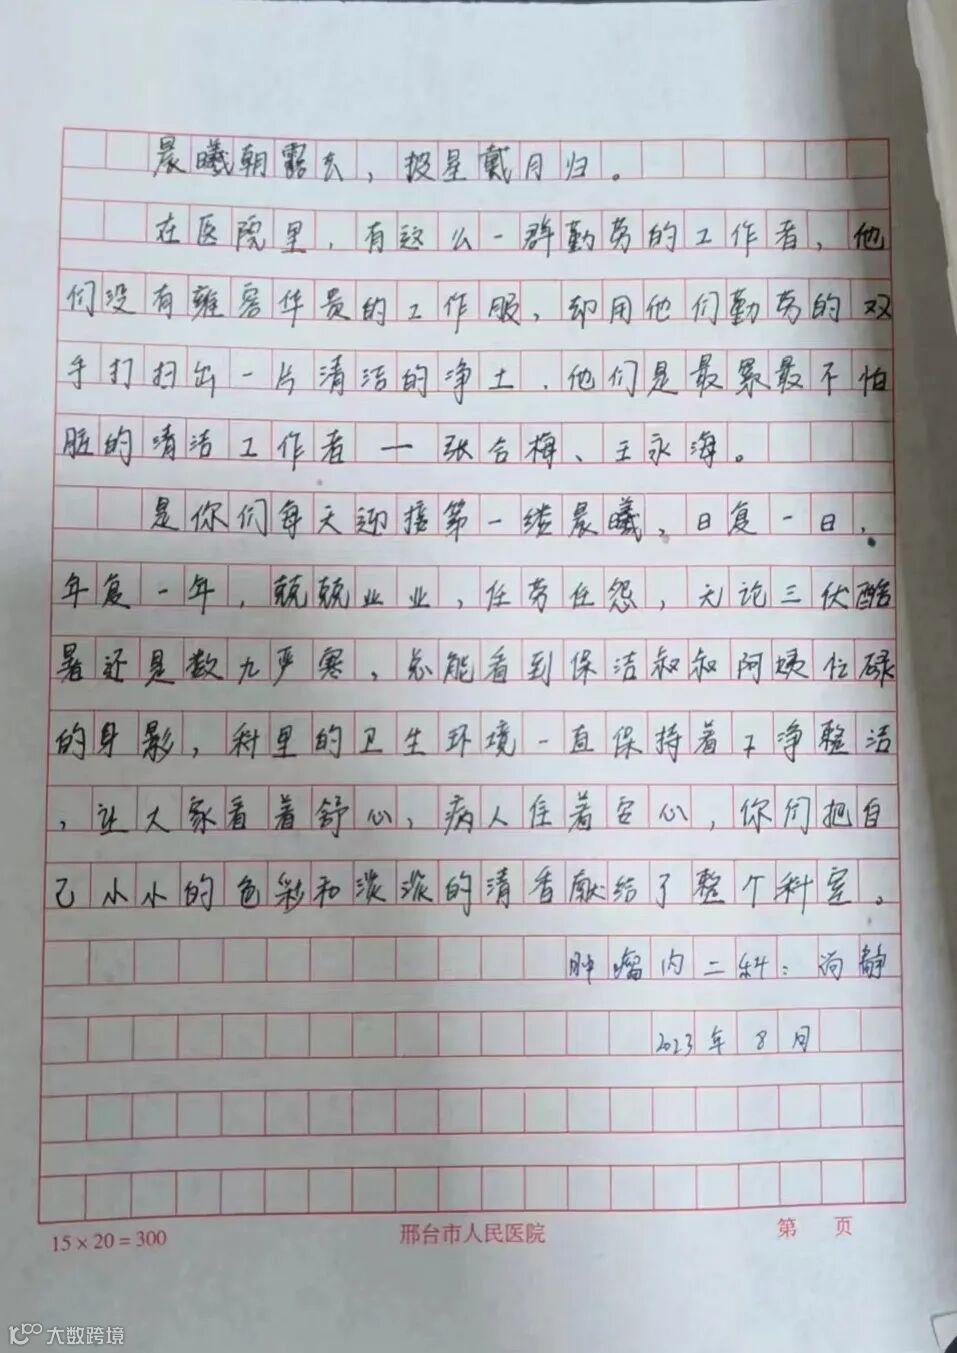 晨曦朝露去，披星戴月归。
在医院里，有这么一群勤劳的工作者，他
们没有雍容华贵的工作服，却用他们勤劳的双
手打扫出一片清洁的净土，他们是最累最不怕
脏的清洁工作者一张合梅、王永海。
是你们每天迎接第一缕晨曦，日复一日，
年复一年，兢兢业业，任劳任怨，无论三伏酷
暑还是数九严寒，总能看到保洁叔叔阿姨忙碌
的身影，科里的卫生环境一直保持着干净整洁
，让大家看着舒心，病人住着安心，你们把自
己小小的色彩和淡淡的清香献给了整个科室。
肿瘤内二科：尚静
2023年8月
15×20=300
邢台市人民医院
第 页
大数跨境